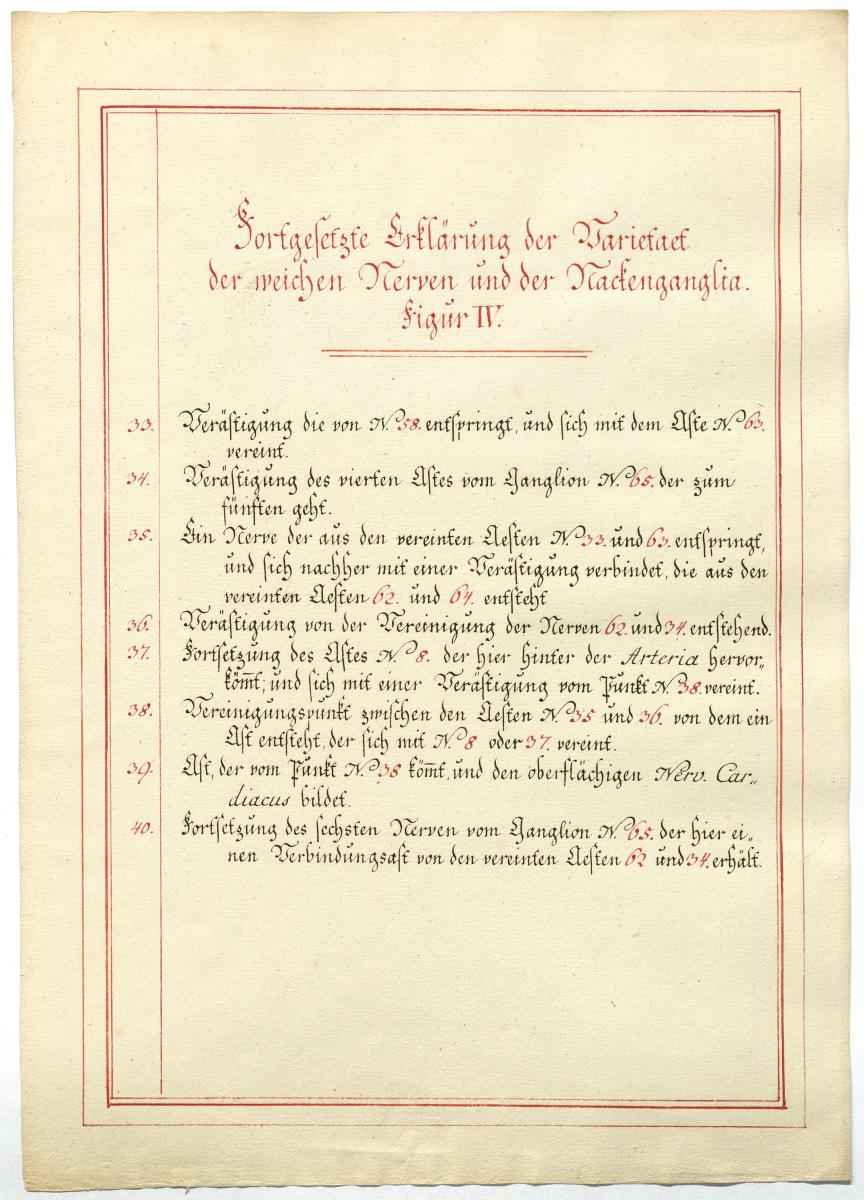 Fortgesetzte Erklärung der Varietaet
der weichen Nerven und der Nackenganglia.
Figur IV.
33. Verästigung die von N.º 58. entspringt, und sich mit dem Aste N.º 63.
vereint.
34. Verästigung des vierten Astes vom Ganglion N.º 65. der zum
fünften geht.
35. Ein Nerve der aus den vereinten Aesten N.º 33. und 63. entspringt,
und sich nachher mit einer Verästigung verbindet, die aus den
vereinten Aesten 62. und 64. entsteht
36. Verästigung von der Vereinigung der Nerven 62. und 34. entstehend.
37. Fortsetzung des Astes N.º 8. der hier hinter der Arteria hervor„
kom̅t, und sich mit einer Verästigung vom Punkt N.º 38. vereint.
38. Vereinigungspunkt zwischen den Aesten N.º 35 und 36. von dem ein
Ast entsteht, der sich mit N.º 8 oder 37. vereint.
39. Ast, der vom Punkt N.º 38 kom̅t, und den oberflächigen Nerv. Car„
diacus bildet.
40. Fortsetzung des sechsten Nerven vom Ganglion N.º 65. der hier ei„
nen Verbindungsast von den vereinten Aesten 62 und 34. erhält.